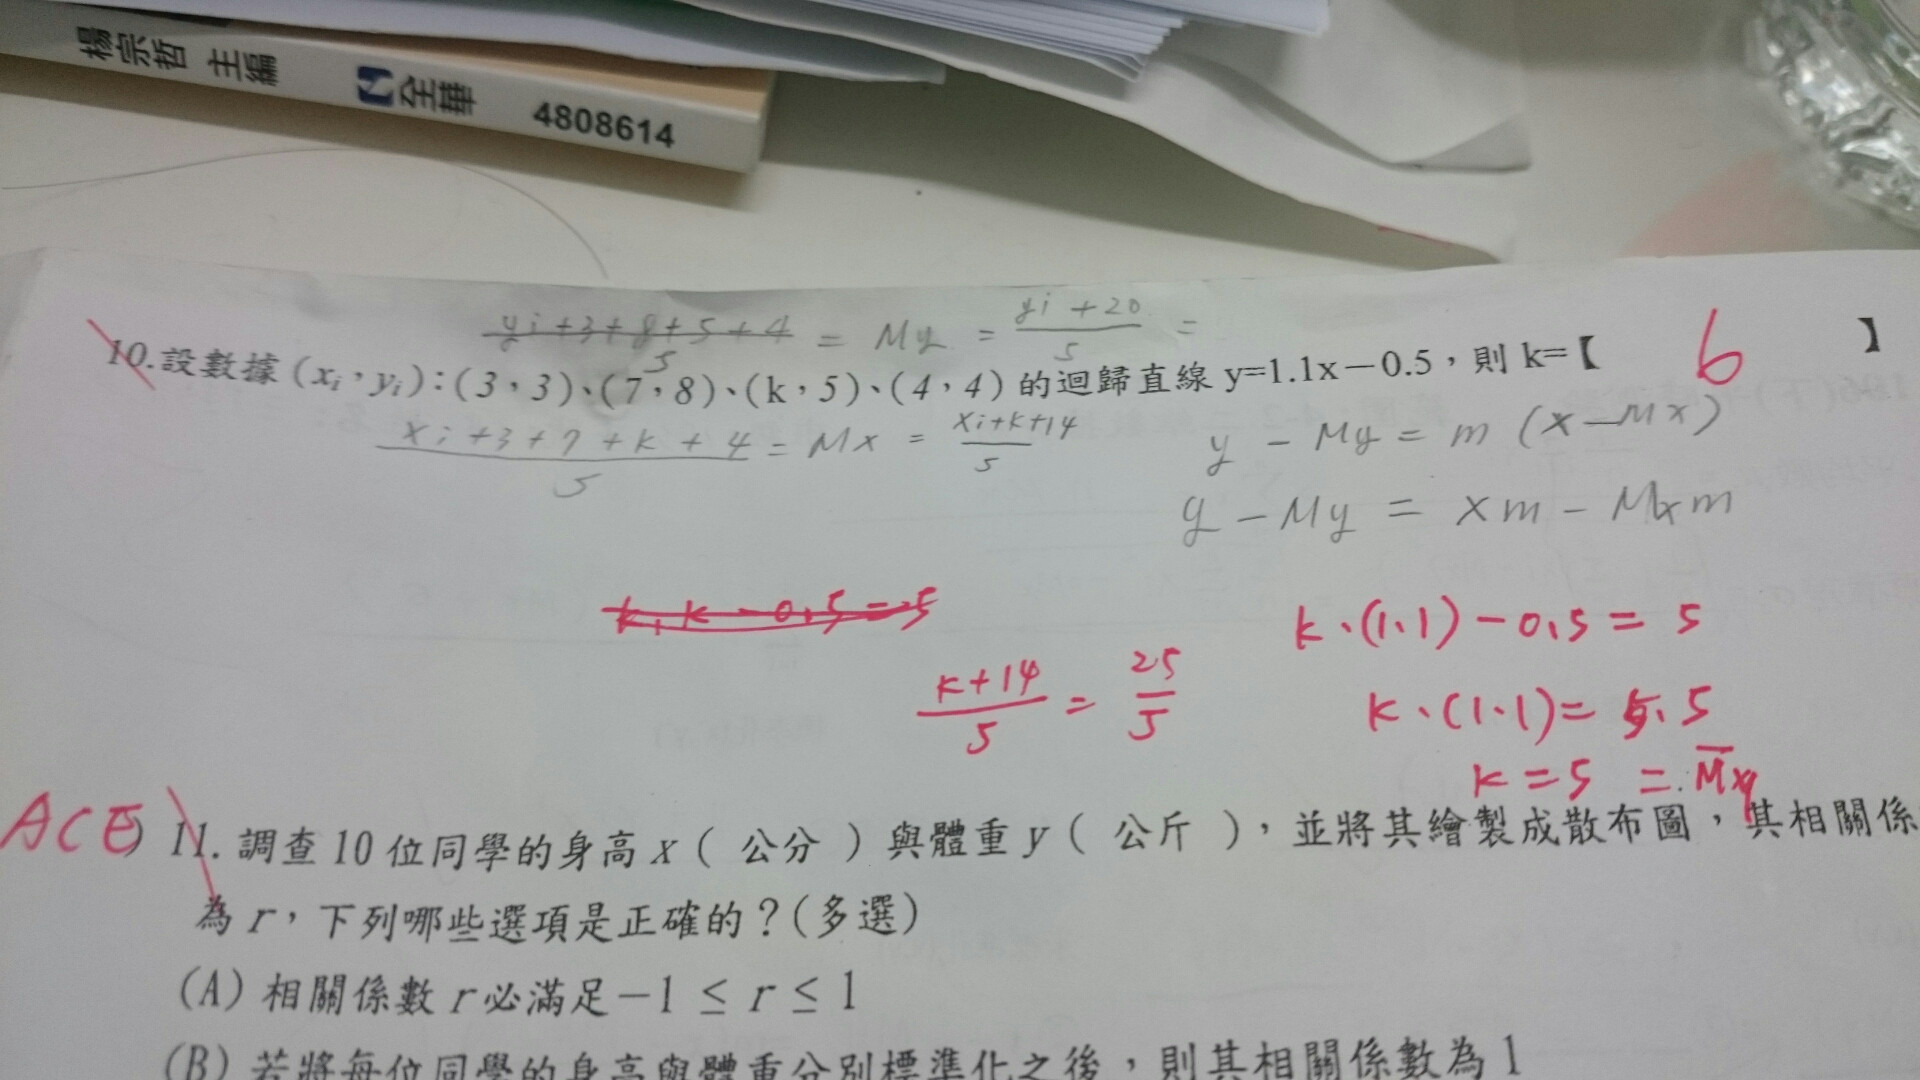 楊宗哲 主編 全華 4808614
yi+3+8+5+4/5 = My = yi+20/5 =
10.設數據(xi,yi):(3,3)、(7,8)、(k,5)、(4,4)的迴歸直線 y=1.1x-0.5,則 k=【 6 】
xi+3+7+k+4/5 = Mx = xi+k+14/5
y - My = m (x-Mx)
y - My = xm - Mxm
k.k-0.5=5
k.(1.1)-0.5=5
k+14/5 = 25/5
k.(1.1)=5.5
k=5 =
ACE) 11.調查10位同學的身高x(公分)與體重y(公斤),並將其繪製成散布圖,其相關係
為r,下列哪些選項是正確的?(多選)
(A)相關係數r必滿足-1≤r≤1
(B)若將每位同學的身高與體重分別標準化之後,則其相關係數為1